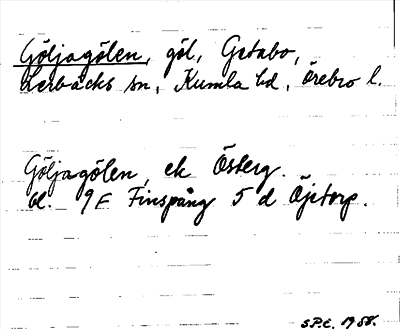 Göljagölen, göl, Getabo,
Lerbäcks sn, Kumla hd, Örebro l.
Göljagölen, ek Österg.
bl. 9 F Finspång 5 d Öjetorp.
1958.